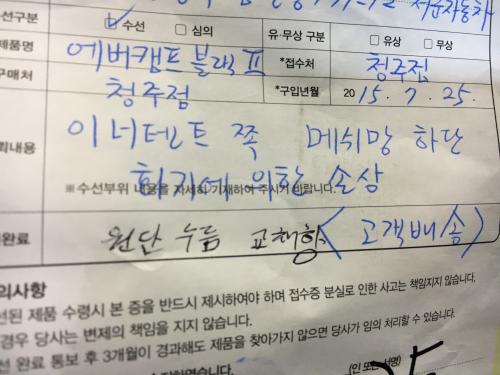 수선구분 ☑ 수선 □ 심의 유·무상 구분 □ 유상 □ 무상
제품명 에버캠프 블랙 *접수처 청주점
구매처 청주점 *구입년월 2015. 7. 25.
의뢰내용 이너텐트 쪽 메쉬망 하단
화기에 의한 손상
※수선부위 내용을 자세히 기재하여 주시기 바랍니다.
완료 원단 누름 교체함 (고객배송)
의사항
선된 제품 수령시 본 증을 반드시 제시하여야 하며 접수증 분실로 인한 사고는 책임지지 않습니다.
경우 당사는 변제의 책임을 지지 않습니다.
선 완료 통보 후 3개월이 경과해도 제품을 찾아가지 않으면 당사가 임의 처리할 수 있습니다.
(인 또는 서명)